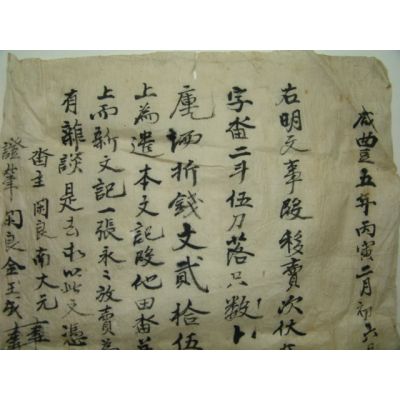 咸豊五年丙寅二月初六日
右明文事段移賣次伏
字畓二斗伍刀落只数卜
庫㐣折錢文貳拾伍
上為遣本文記段他田畓並
上而新文記一張永〻放賣為
有雜談是去乃以此文憑
畓主 閑良南大元
證筆 閑良金玉成